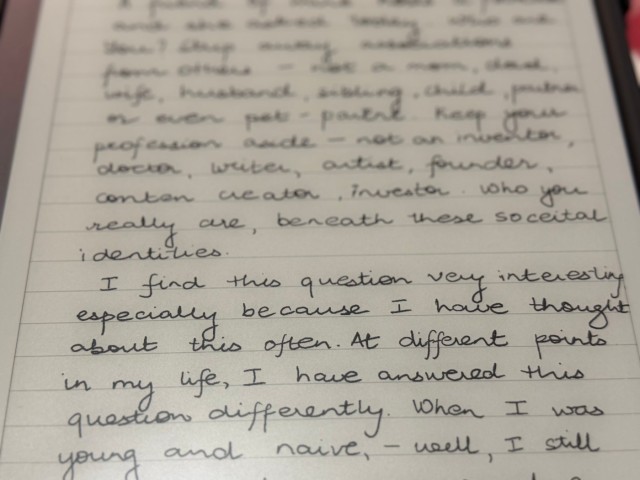 A friend of mine
and she asked today who are
you? Strip away associations
from others - not a mom, dad,
wife, husband, sibling, child, partner
or even pet-parent. Keep your
profession aside - not an inventor,
doctor, writer, artist, founder,
conten creator, investor. Who you
really are, beneath these soceital
identities.
I find this question very interesting
especially because I have thought
about this often. At different points
in my life, I have answered this
question differently. When I was
young and naive, - well, I still